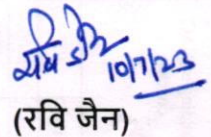 रवि जैन
10/7/23
(रवि जैन)